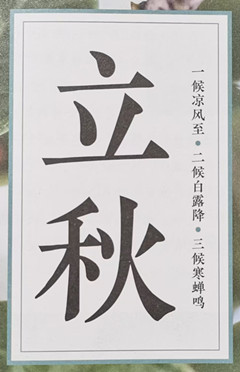 立秋
一候凉风至●二候白露降●三候寒蝉鸣